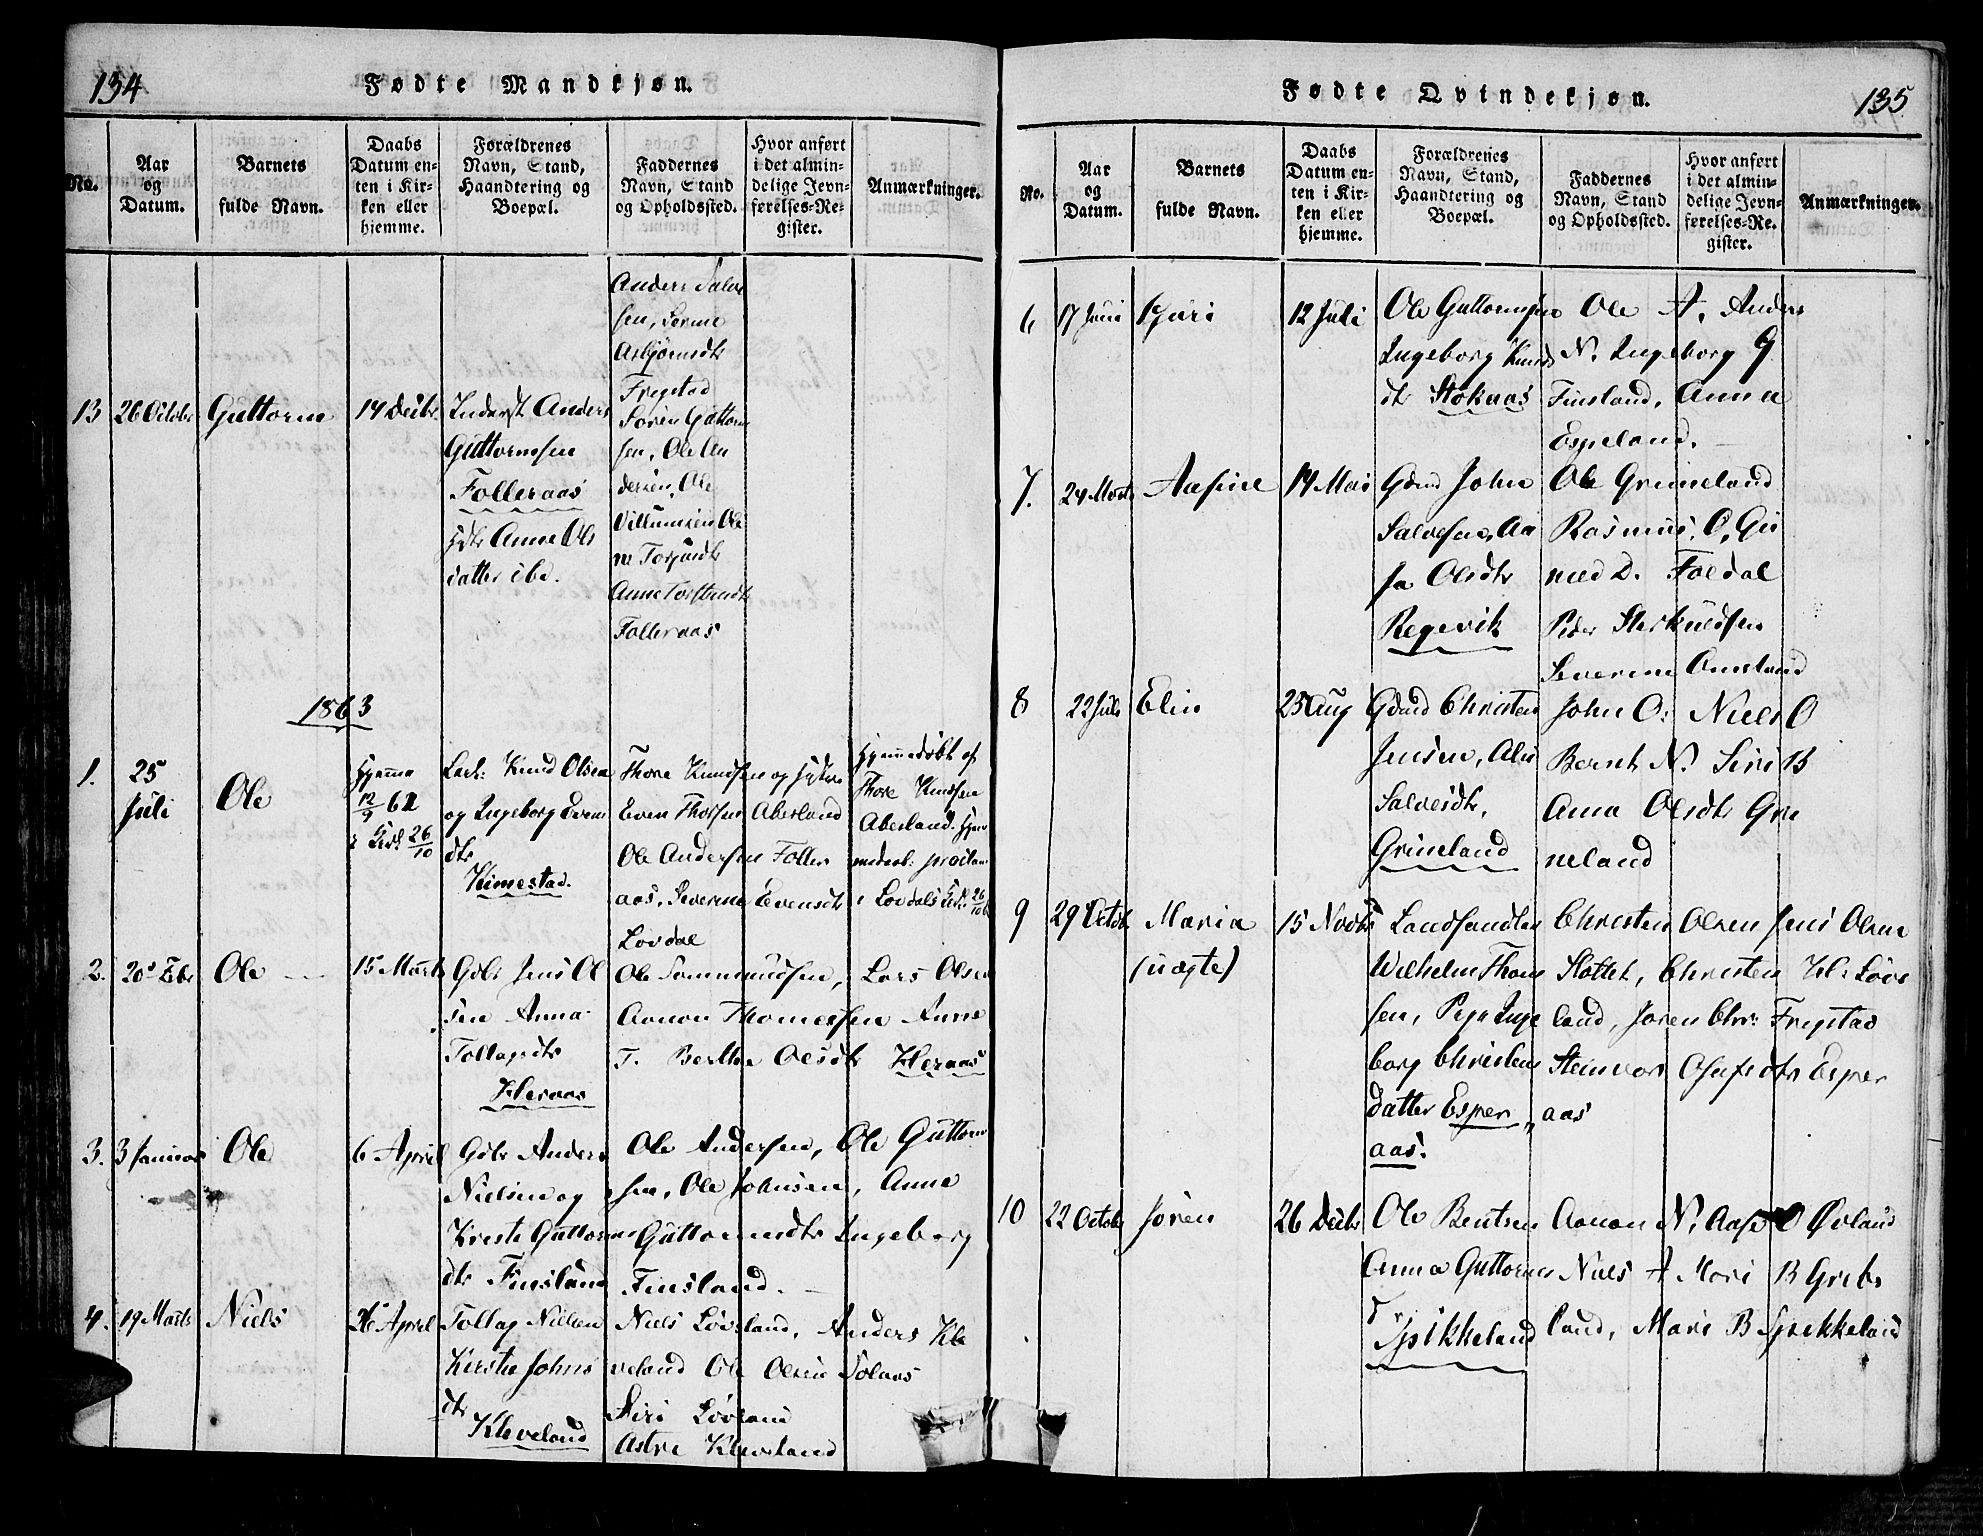 134
Fødte Mandkjøn.
No.
Aar og Datum.
Barnets fulde Navn.
Daabs Datum enten i Kirken eller hjemme.
Forældrenes Navn, Stand, Haandtering og Boepæl.
Faddernes Navn, Stand og Opholdssted.
Hvor anført i det almindelige Jevnførelses-Register.
Anmærkninger.
13 26 October Guttorm 14 Decbr.
Inderst Anders
Guttormsen
Folleraas
Anne Ols
datter ibd.
Anders Salve
sen,
Asbjørnsdtr
Fregstad
Søren Guttorm
sen, Ole An
dersen, Ole
Villumsen Ole
Anne Torstendtr
Folleraas
1863
1. 25 Juli Ole
Hjemme
12/9 62
i Kirk 26/10
Knud Olsen
og Ingeborg Evens
dtr
Kimestad.
Thore Knudsen og Hustru
Even Thorsen Aberland
Ole Andersen Foller
aas, Severine Evensdtr
Lovdal
Hjemmedøbt af
Thore Knudsen
Aberland. Hjem
medaab: proclam
i Lovdals Kirk 26/10
2. 20de Febr Ole 15 Marts
Gdbr Jens Ol
sen Anna
Tollagsdtr
Heraas
Ole Sammundsen, Lars Olsen
Aanon Thomessen Anne
T. Berthe Olsdtr Heraas
3. 3 Januar Ole 6 April
Gdbr Anders
Nielsen og
Kirste Guttorms
dtr Finsland
Ole Andersen, Ole Guttorm
sen, Ole Johnsen, Anne
Guttormsdtr Ingeborg
Finsland.
4. 19 Marts Niels 26 April
Tollag Nielsen
Kirstie Johns
dtr
Kleveland
Niels Løvland, Anders Kle
veland Ole Olsen Solaas
Siri Løvland
Astri Kleveland
Fødte Qvindekjøn.
135.
No.
Aar og Datum.
Barnets fulde Navn.
Daabs Datum enten i Kirken eller hjemme.
Forældrenes Navn, Stand, Haandtering og Boepæl.
Faddernes Navn, Stand og Opholdssted.
Hvor anført i det almindelige Jevnførelses-Register.
Anmærkninger.
6 17 Juni Guri 12 Juli
Ole Guttormsen
Ingeborg Knuds
dtr Stokaas
Ole A. Anders
N. Ingeborg G
Finsland, Anna
Espeland.
7. 24 Marts Aasine 14 Mai
Gdmd John
Salvesen, Aa
sa Olsdtr
Regevik
Ole Grimeland
Rasmus O. Gu
Foldal
Peder Sterkuldsen
Severine Omeland
8 22 Juli Elin 23 Aug
Gdmd Christen
Jensen,
Salvesdtr,
Grimeland
John O: Niels O
Bernt N. Siri B
Anna Olsdtr Gri
meland
9 29 Octob Maria 15 Novbr
(uægte)
Landhandler
Wilhelm Thom
sen, Pige Inge
borg Christens
datter Esper
aas.
Christen Olsen Jens Olsen
Slottet, Christen H: Løvs
land, Søren Chr: Fregstad
Steinvor Olufsdtr Esper
aas
10 22 Octob Søren 26 Decbr
Ole Bentsen
Anna Guttorms
dr
Spikkeland
Aanon N. Aase O Øvland
Niels A Mari B Greb
land, Mari B Spikkeland